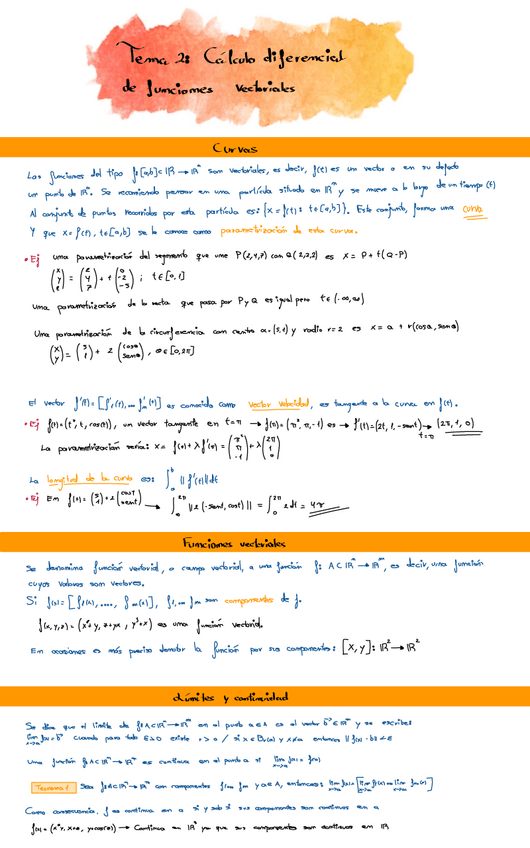 Tema 2: Cálculo diferencial
de funciones vectoriales
Curvas
Las funciones del tipo f:[a,b]⊂ℝ→ℝⁿ son vectoriales, es decir, f(t) es un vector o en su defecto
un punto de ℝⁿ. Se recomienda pensar en una partícula situada en ℝⁿ y se mueve a lo largo de un tiempo (t)
Al conjunto de puntos recorridos por esta partícula es: {x = f(t) : t∈[a,b]}. Este conjunto, forma una curva
Y que x = f(t), t∈[a,b] se le conoce como parametrización de esta curva.
• Ej una parametrización del segmento que une P(2,4,7) con Q(2,2,2) es X = P + t(Q-P)
(x y z) = (2 4 7) + t (0 -2 -5) ; t∈[0,1]
Una parametrización de la recta que pasa por P y Q es igual pero t∈(-∞,∞)
Una parametrización de la circunferencia con centro a=(3,1) y radio r=2 es x = a + r(cosθ, senθ)
(x y) = (3 1) + 2 (cosθ senθ), θ∈[0,2π]
El vector f'(t) = [f'₁(t),... f'ₘ(t)] es conocido como vector velocidad, es tangente a la curva en f(t).
• Ej f(t)=(t², t, cos(t)), un vector tangente en t=π → f(π)=(π², π, -1) es → f'(t)=(2t, 1, -sent) → t=π (2π, 1, 0)
La parametrización sería: x = f(π)+λ f'(π) = (π² π -1) + λ (2π 1 0)
La longitud de la curva es: ∫ₐᵇ ||f'(t)|| dt
• Ej En f(t) = (3 1) + 2 (cost sent) → ∫₀²π ||2(-sent, cost)|| = ∫₀²π 2dt = 4π
Funciones vectoriales
Se denomina función vectorial, o campo vectorial, a una función f: A⊂ℝⁿ→ℝᵐ, es decir, una función
cuyos valores son vectores.
Si f(x) = [f₁(x), ...., fₘ(x)], f₁,... fₘ son componentes de f.
f(x,y,z) = (x²+y, z+yx, y³+x) es una función vectorial.
En ocasiones es más preciso denotar la función por sus componentes: [X,Y]: ℝ²→ℝ²
Límites y continuidad
Se dice que el límite de f:A⊂ℝⁿ→ℝᵐ en el punto a∈A es el vector b∈ℝᵐ y se escribe:
lim x→a f(x)=b cuando para todo ε>0 existe r>0 / si x∈Bᵣ(a) y x≠a entonces ||f(x)-b||<ε
Una función f:A⊂ℝⁿ→ℝᵐ es continua en el punto a si lim x→a f(x) = f(a)
Teorema 1 Sea f:A⊂ℝⁿ→ℝᵐ con componentes f₁,... fₘ y a∈A, entonces: lim x→a f(x) = [lim x→a f₁(x),... lim x→a fₘ(x)]
Como consecuencia, f es continua en a si y solo si sus componentes son continuas en a